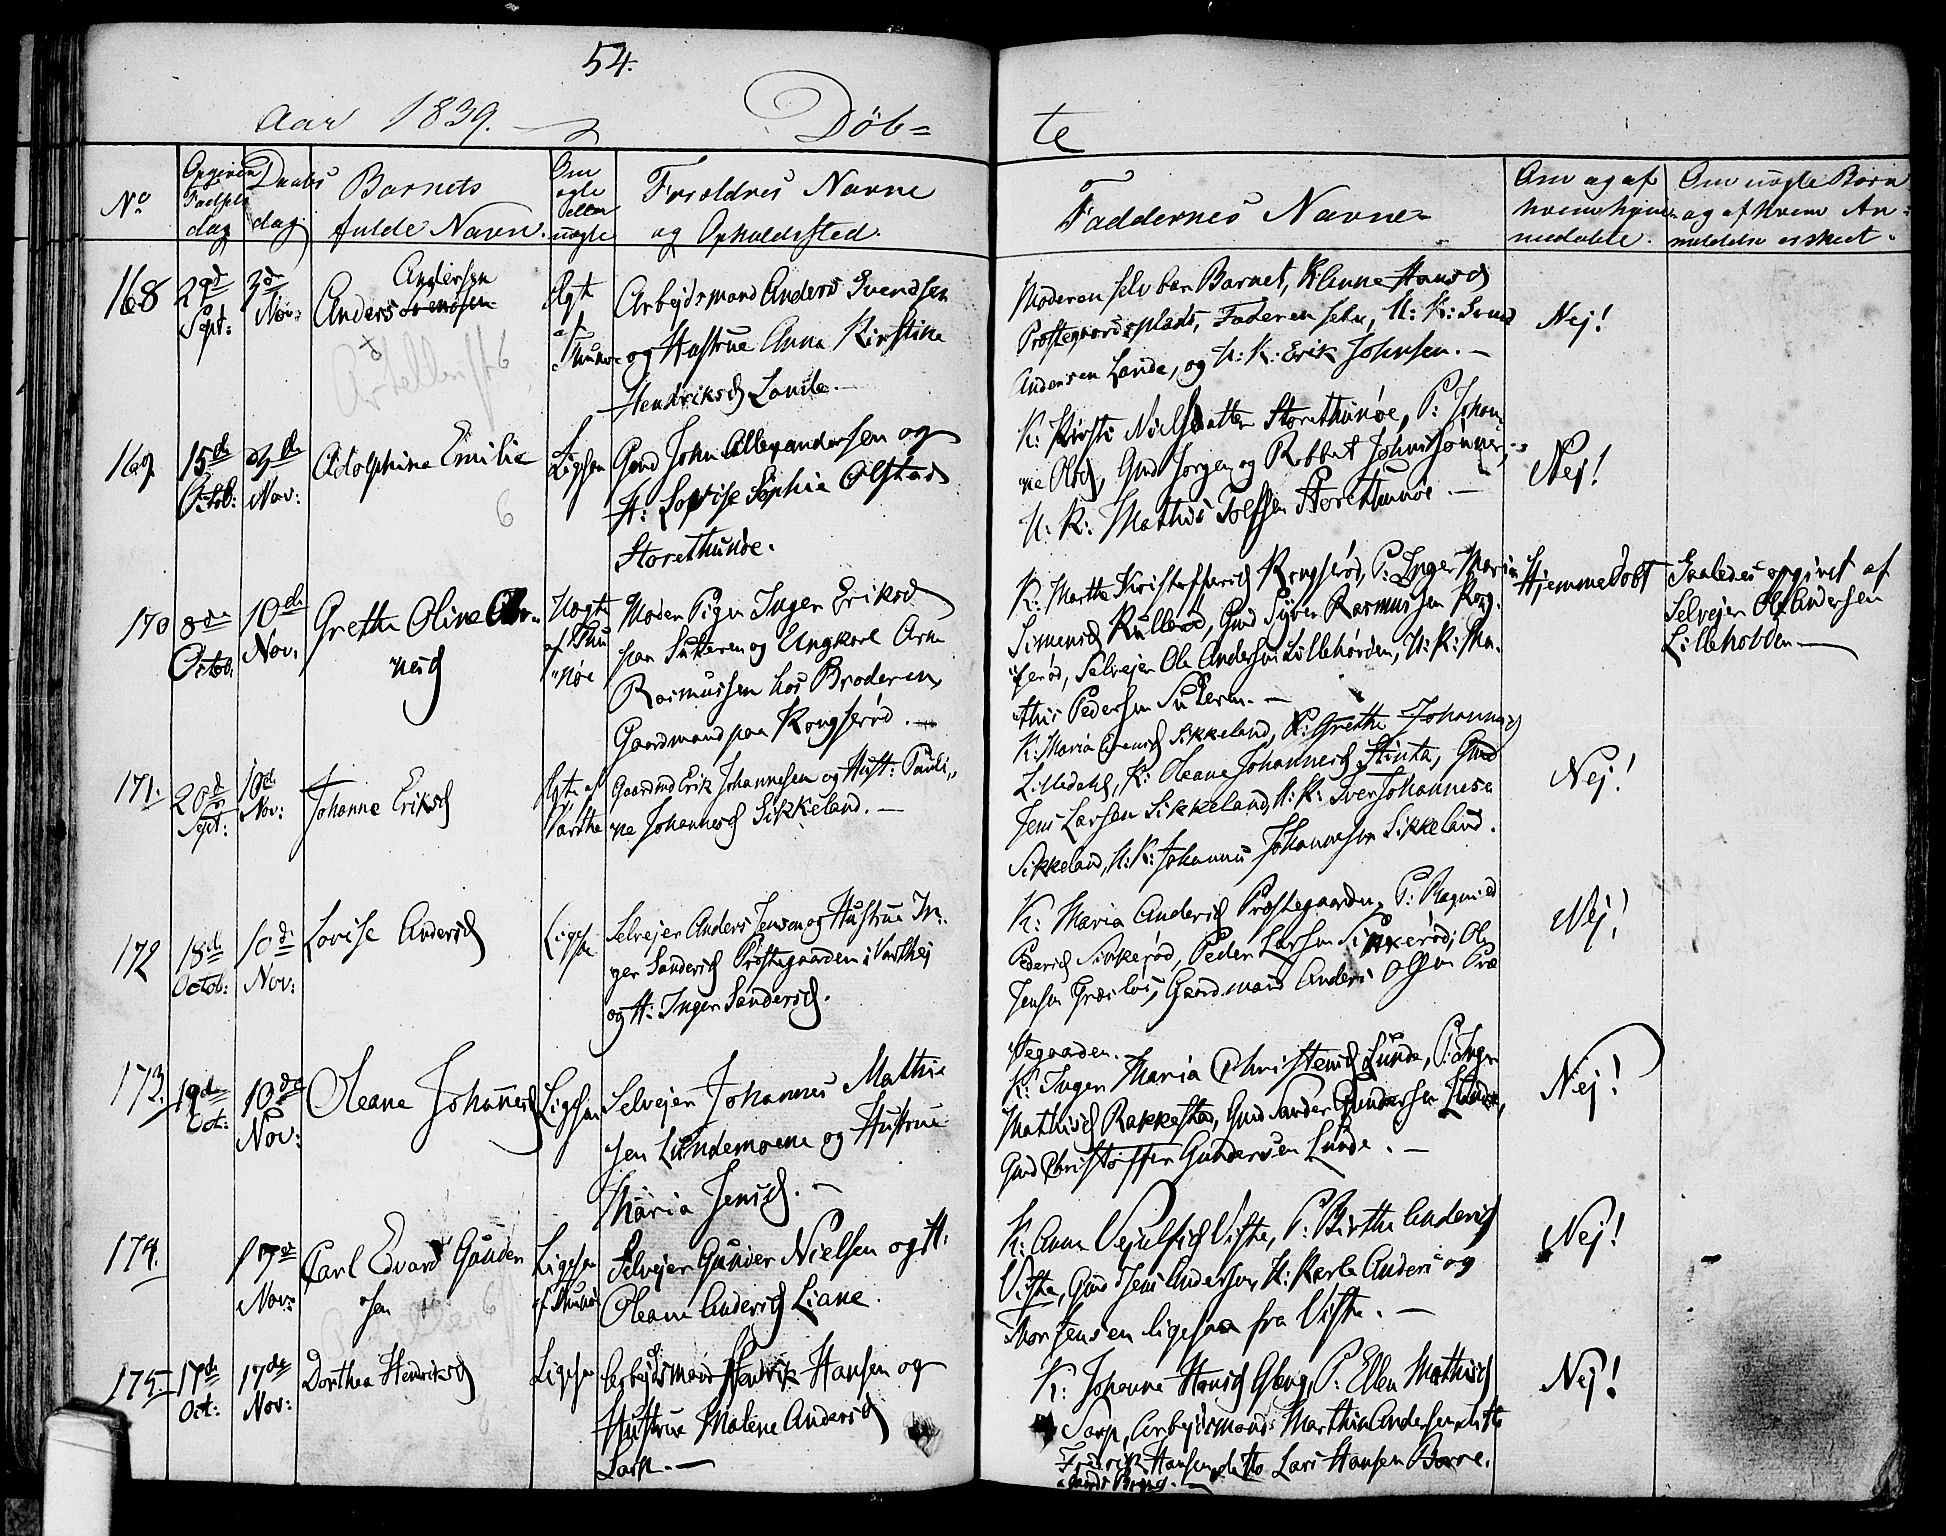 54.
Aar 1839.
Døb=
te
No
Opgiven
Fødsels
dag
Daabs
dag
Barnets
fulde Navn.
Om
ægte
eller
uægte
Foreldres Navne
og Opholdsted.
Faddernes Navne
Om og af
hvem hjem=
medøbte.
Om uægte Børn
og af hvem An=
meldelse er skeet.
168
29d
Sept:
3de
Nov:
Andersen
Anders Svendsen
Ægte
af
Thunøe
Arbejdsmand Anders Svendsen
og Hustrue Anna Kirstine
Hendriksd Lande.
Moderen selv bar Barnet, K: Anne Hansd
Prostegaardsplads, Faderen selv, U: K: Svend
Andersen Lande, og U: K: Erik Johnsen.
Nej!
169
15de
Octob:
3de
Nov:
Adolphine Emilie
6
Ligesaa
Gmd John Allexandersen og
H: Lovise Sophie Olstad
Storethunøe.
K: Kirsti Nielsdatter Storethunøe, P: Johan
ne Olsd, Gmd Jørgen og Robbert Johnssønner,
U: K: Mathis Tolfsen Storethunøe.
Nej!
170
8de
Octob:
10de
Nov:
Grethe Oline Ar=
nesd
Uægte
af Thu
nøe
Moder Pigen Inger Eriksd
paa Sukeren og Ungkarl Arne
Rasmussen hos Broderen,
Gaardmand paa Kongserød.
K: Marthe Kristoffersd Kongserød, P: Inger Maria
Simensd Kullerød, Gmd Syver Rasmussen Kong
serød, Selvejer Ole Andersen Lillehobden, U: K: Ma
this Pedersen Sukeren.
Hjemmedøbt
Saaledes opgivet af
Selvejer Ole Andersen
Lillehobden
171.
20de
Sept:
10de
Nov:
Johanne Eriksd
Ægte af
Varthe
Gaardmd Erik Johannesen og Hust: Pauli
ne Johannesd Sikkeland.
K: Maria Svensd Sikkeland, P: Grethe Johannesd
Lilledahl, K: Oleane Johannesd Stinta, Gmd
Jens Larsen Sikkeland, U: K: Iver Johannesen
Sikkeland, U: K: Johannes Johannesen Sikkeland.
Nej!
172
18de
Octob:
10de
Nov:
Lovise Andersd
Ligesaa
Selvejer Anders Jensen og Hustrue In
ger Sandersd Prostegaarden i Varthej
og H: Inger Sandersd.
K: Maria Andersd Prostegaarden, P: Ragnild
Pedersd Sikkerød, Peder Larsen Sikkerød, Ole
Jensen Græslos, Gaardmand Anders Olsen Pro
stegaarden.
Nej!
173.
19de
Oct:
10de
Nov:
Oleane Johannesd
Ligesaa
Selvejer Johannes Mathie
sen Lundemoene og Hustrue
Maria Jensd.
K: Inger Maria Christensd Lunde, P: Inger
Mathisd Rakkestad, Gmd Sander Gundersen Lunde,
Gmd Christoffer Gundersen Lunde.
Nej!
174.
17de
Nov:
Carl Edvard Gunder
sen
6
Ligesaa
af Thunøe
Selvejer Gunder Nielsen og H:
Oleane Andersd Liane.
K: Anne Vejulfsd Viste, P: Birthe Andersd
Viste, Gmd Jens Andersen, U: Karle Anders og
Thor Jensen ligesaa fra Viste.
Nej!
175
17de
Oct:
17de
Nov:
Dorthea Hendriksd
6
Ligesaa
Arbejdsmand Hendrik Hansen og
Hustrue Malene Andersd
Sarp.
K: Johanne Hansd Gleng, P: Ellen Mathisd
Sarp, Arbejdsmænds Marthin Andersen ditto
Fredrik Hansen ditto Lars Hansen Borre.